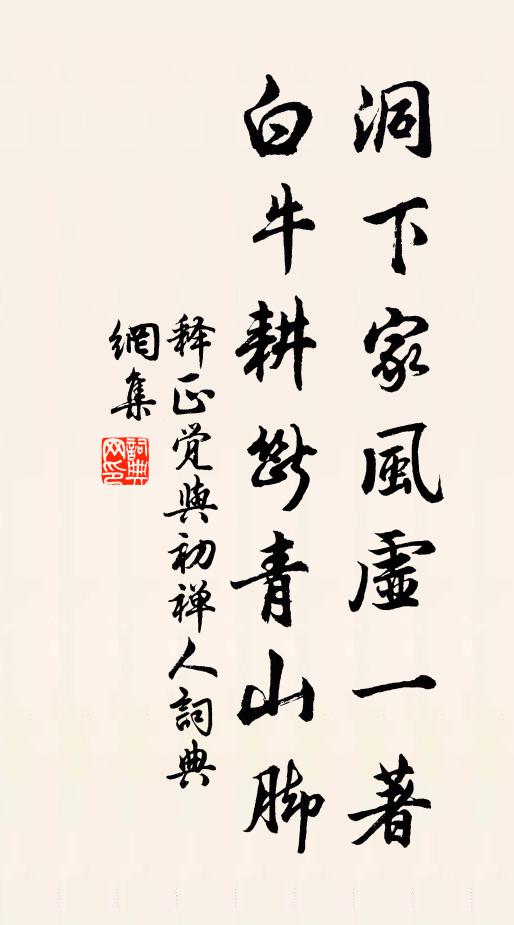 洞下家風虛一著
白牛耕斷青山脚
释正觉與初禅人詞典
網集
詞典网印